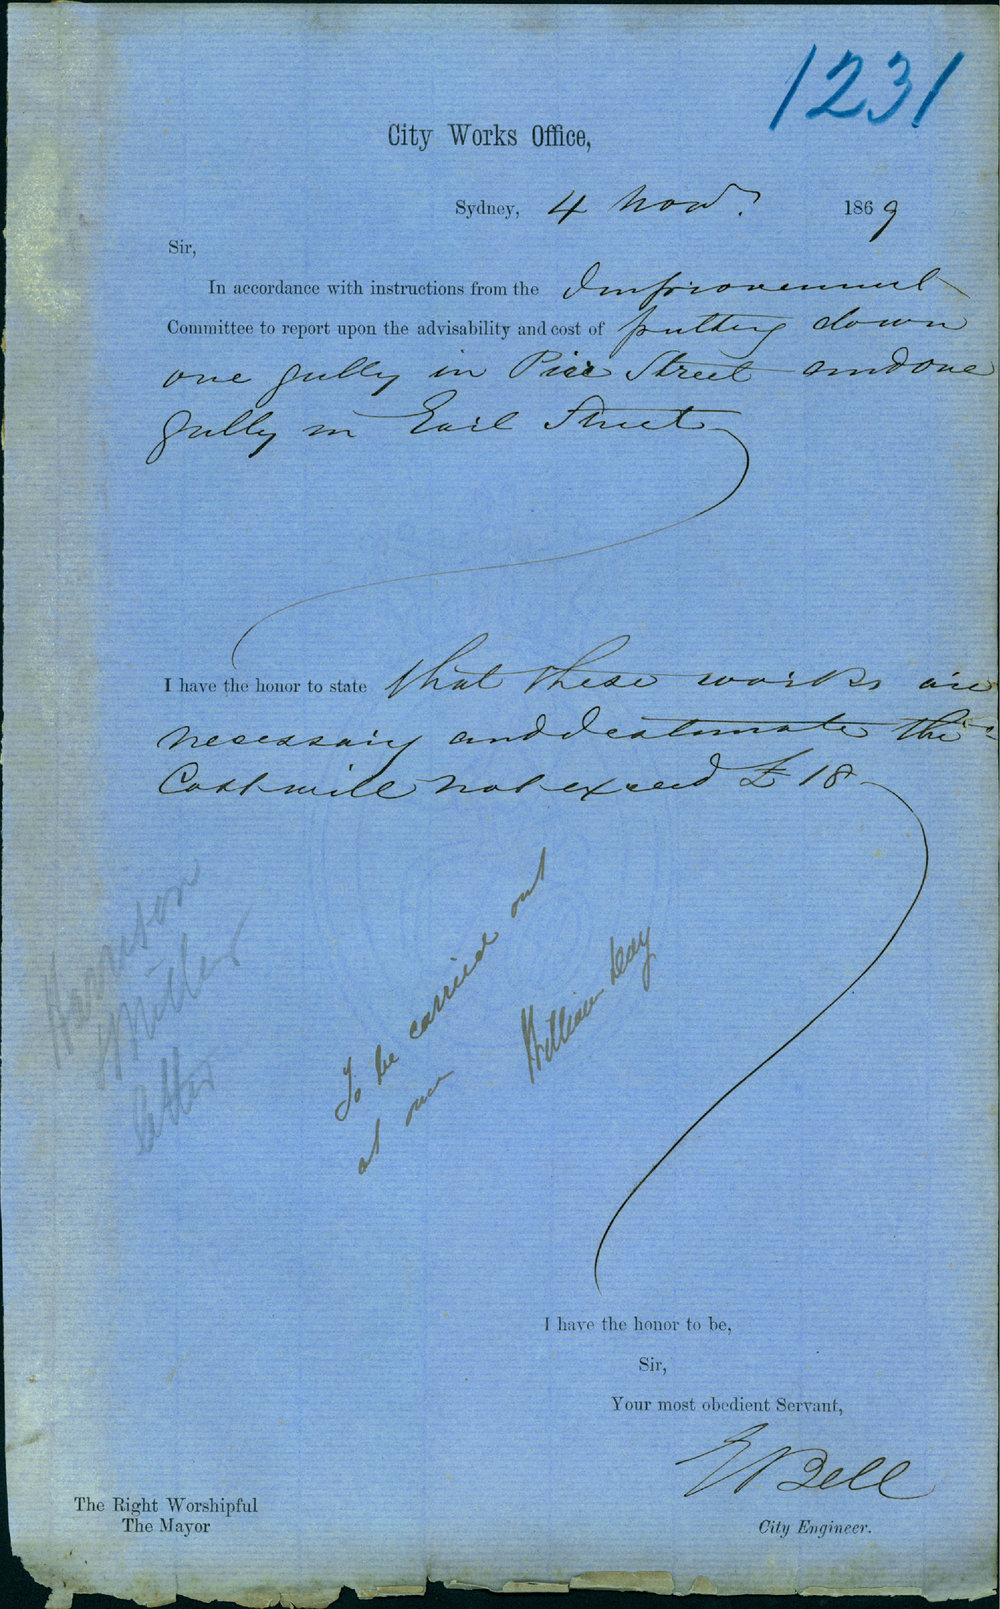 1231
City Works Office,
Sydney, 4 Novr. 1869
Sir,
In accordance with instructions from the Improvement
Committee to report upon the advisability and cost of putting down
one gully in Pier Street and one
gully in Earl Street
I have the honor to state that these works are
necessary and I estimate the
Cost will not exceed £18
To be carried out
at once
William Day
Harrison
Miller
letter
I have the honor to be,
Sir,
Your most obedient Servant,
E Bell
City Engineer.
The Right Worshipful
The Mayor